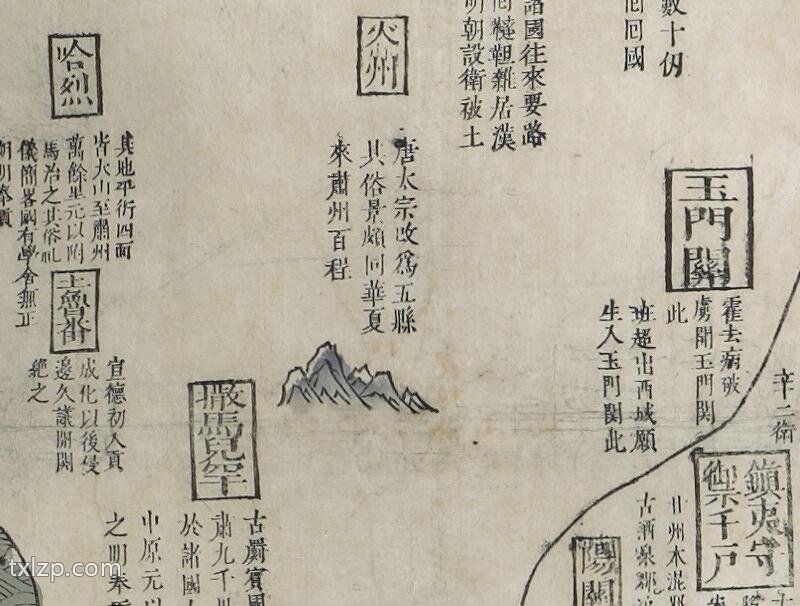 數十仞
回回國
諸國往來要路
回韃靼雜居漢
明朝設衛被土
火州
唐太宗改爲五縣
其俗景頗同華夏
來肅州百程
哈烈
其地平衍四面
皆大山至肅州
萬餘里元以附
馬治之其俗礼
儀簡畧國有學舍無正
朔明奉貢
土魯番
宣德初入貢
成化以後侵
邊久議開関
絶之
玉門關
霍去病破
虜開玉門関
此
班超出西域願
生入玉門関此
辛二衛
鎮夷守
禦千戸
甘州木混
古酒泉郡
陽關
撒馬兒罕
古罽賓
肅九千里
於諸國
中原元以
之明奉
txlzp.com